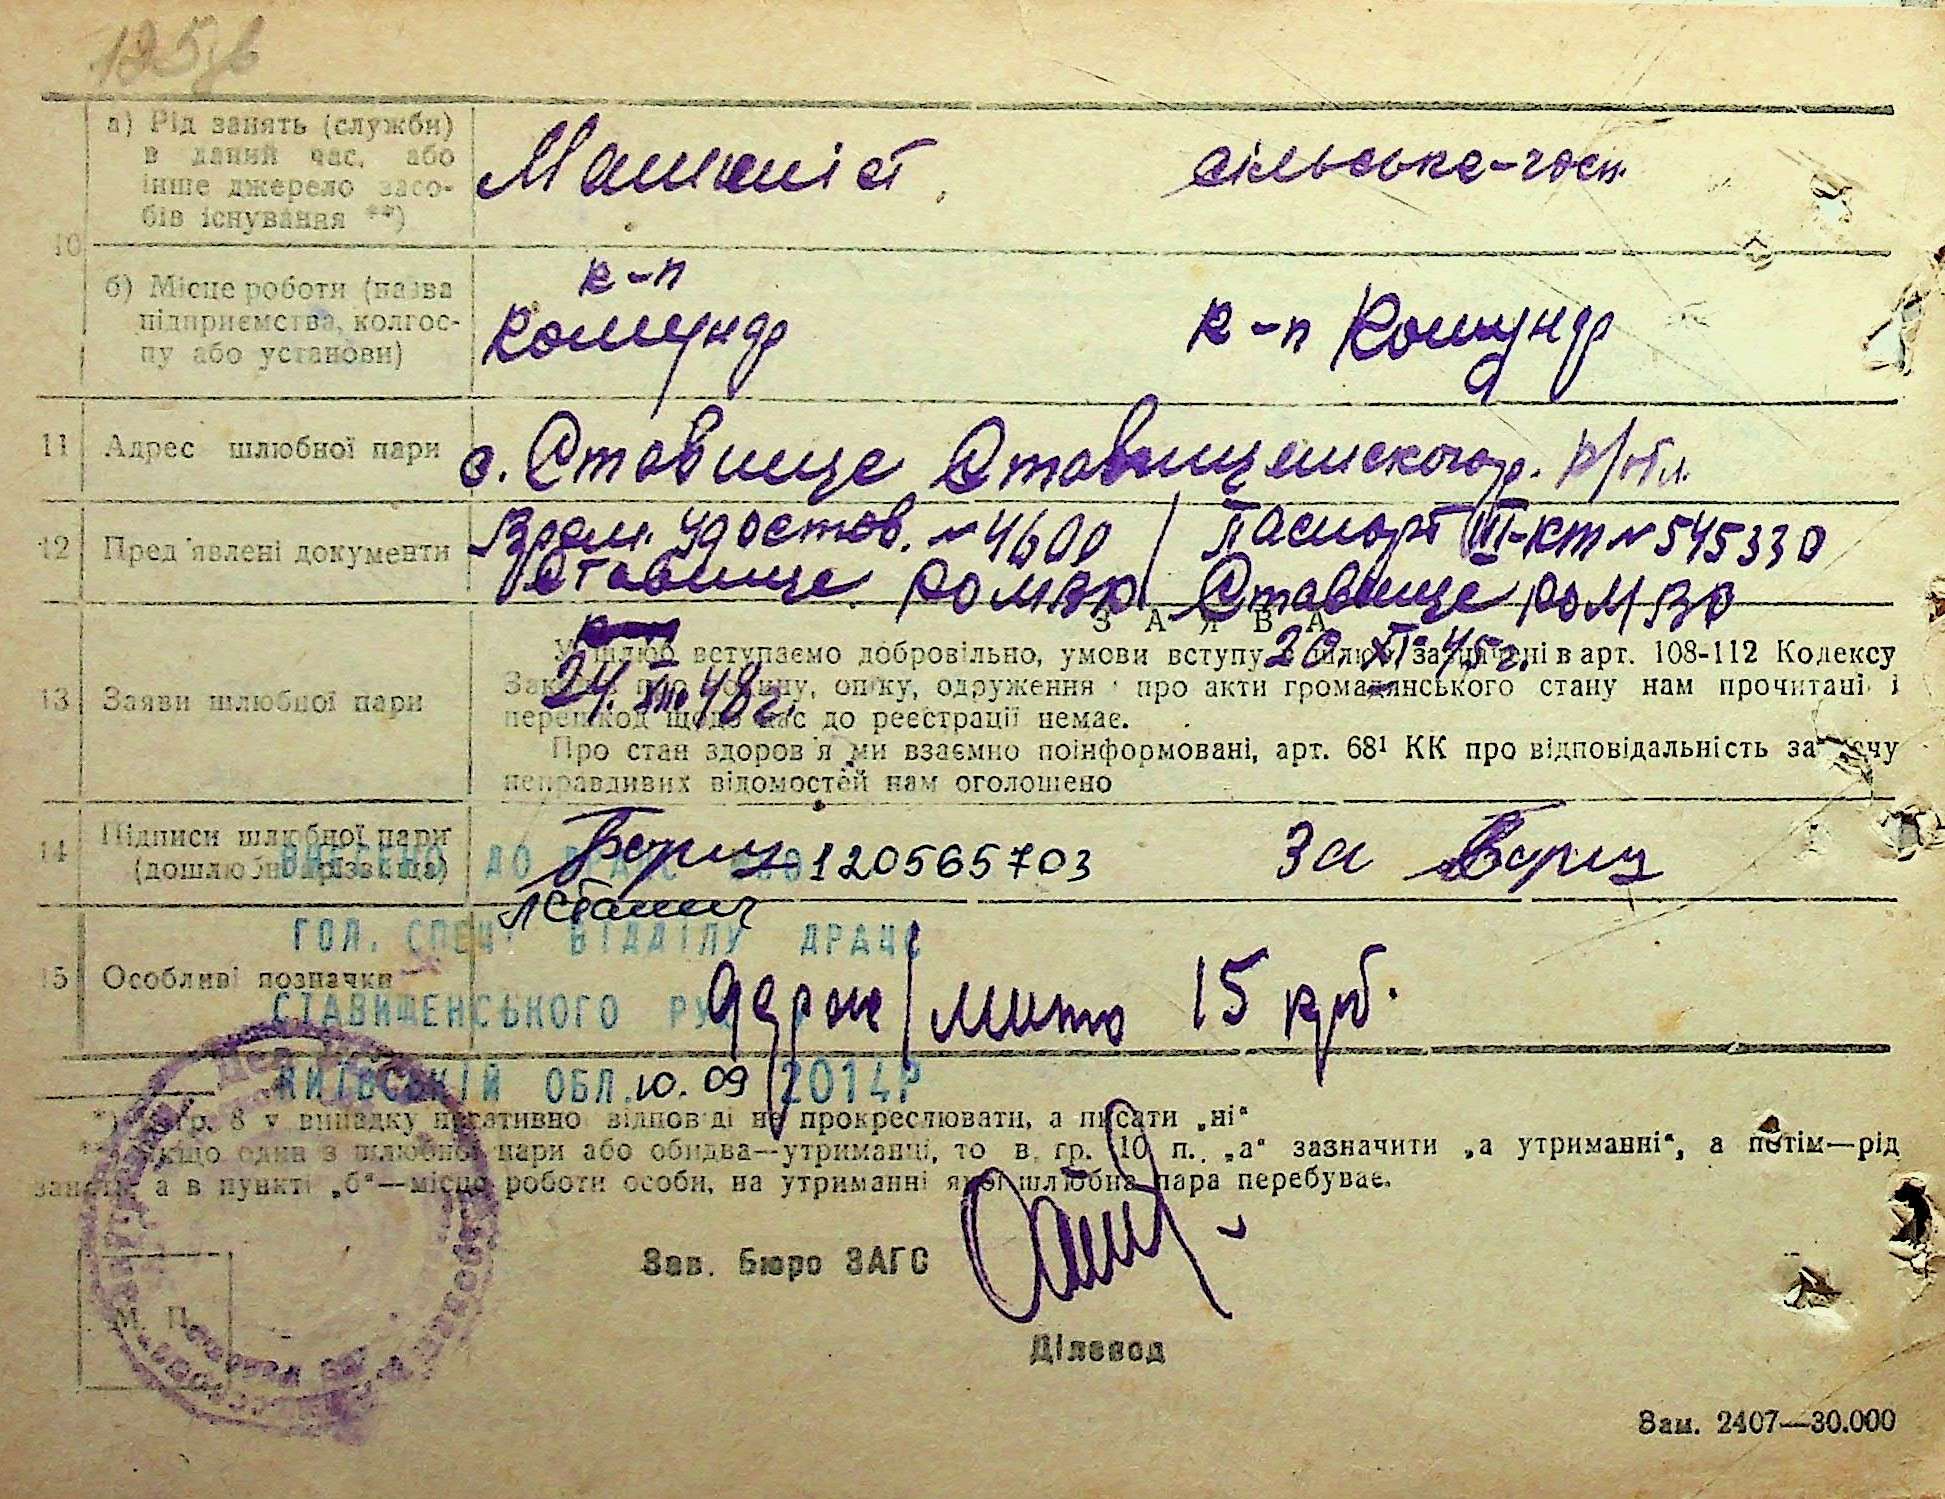 а) Рід занять (служби)
в даний час, або
інше джерело засо-
бів існування **)
Машиніст
сільське-госп.
10
б) Місце роботи (назва
підприємства, колгос-
пу або установи)
к-п
Комунар
к-п Комунар
11 Адрес шлюбної пари
с. Ставище Ставищенского р. К/обл.
12 Пред'явлені документи
Врем. удостов. № 4600 / Паспорт III-кт № 545330
Ставище РОМВД Ставище РОМВД
24. 48 г.
20. XI. 45 г.
13 Заяви шлюбної пари
ЗАЯВА
У шлюб вступаємо добровільно, умови вступу в шлюб зазначені в арт. 108-112 Кодексу
Законів про родину, опіку, одруження про акти громадянського стану нам прочитані і
перешкод щодо нас до реєстрації немає.
Про стан здоров'я ми взаємно поінформовані, арт. 68¹ КК про відповідальність за дачу
неправдивих відомостей нам оголошено
14 Підписи шлюбної пари
(дошлюбні прізвища)
120565703
За
ВНЕСЕНО ДО
ГОЛ. СПЕЦ. ВІДДІЛУ ДРАЦС
15 Особливі позначки
СТАВИЩЕНСЬКОГО
держ/мито 15 крб.
КИЇВСЬКІЙ ОБЛ. 10.09 2014Р
*) В гр. 8 у випадку негативно відповіді не прокреслювати, а писати „ні“
**) Якщо один з шлюбної пари або обидва—утриманці, то в гр. 10 п. „а“ зазначити „а утриманні“, а потім—рід
занять, а в пункті „б“—місце роботи особи, на утриманні якої шлюбна пара перебуває.
Зав. Бюро ЗАГС
М. П.
Діловод
Зам. 2407—30.000